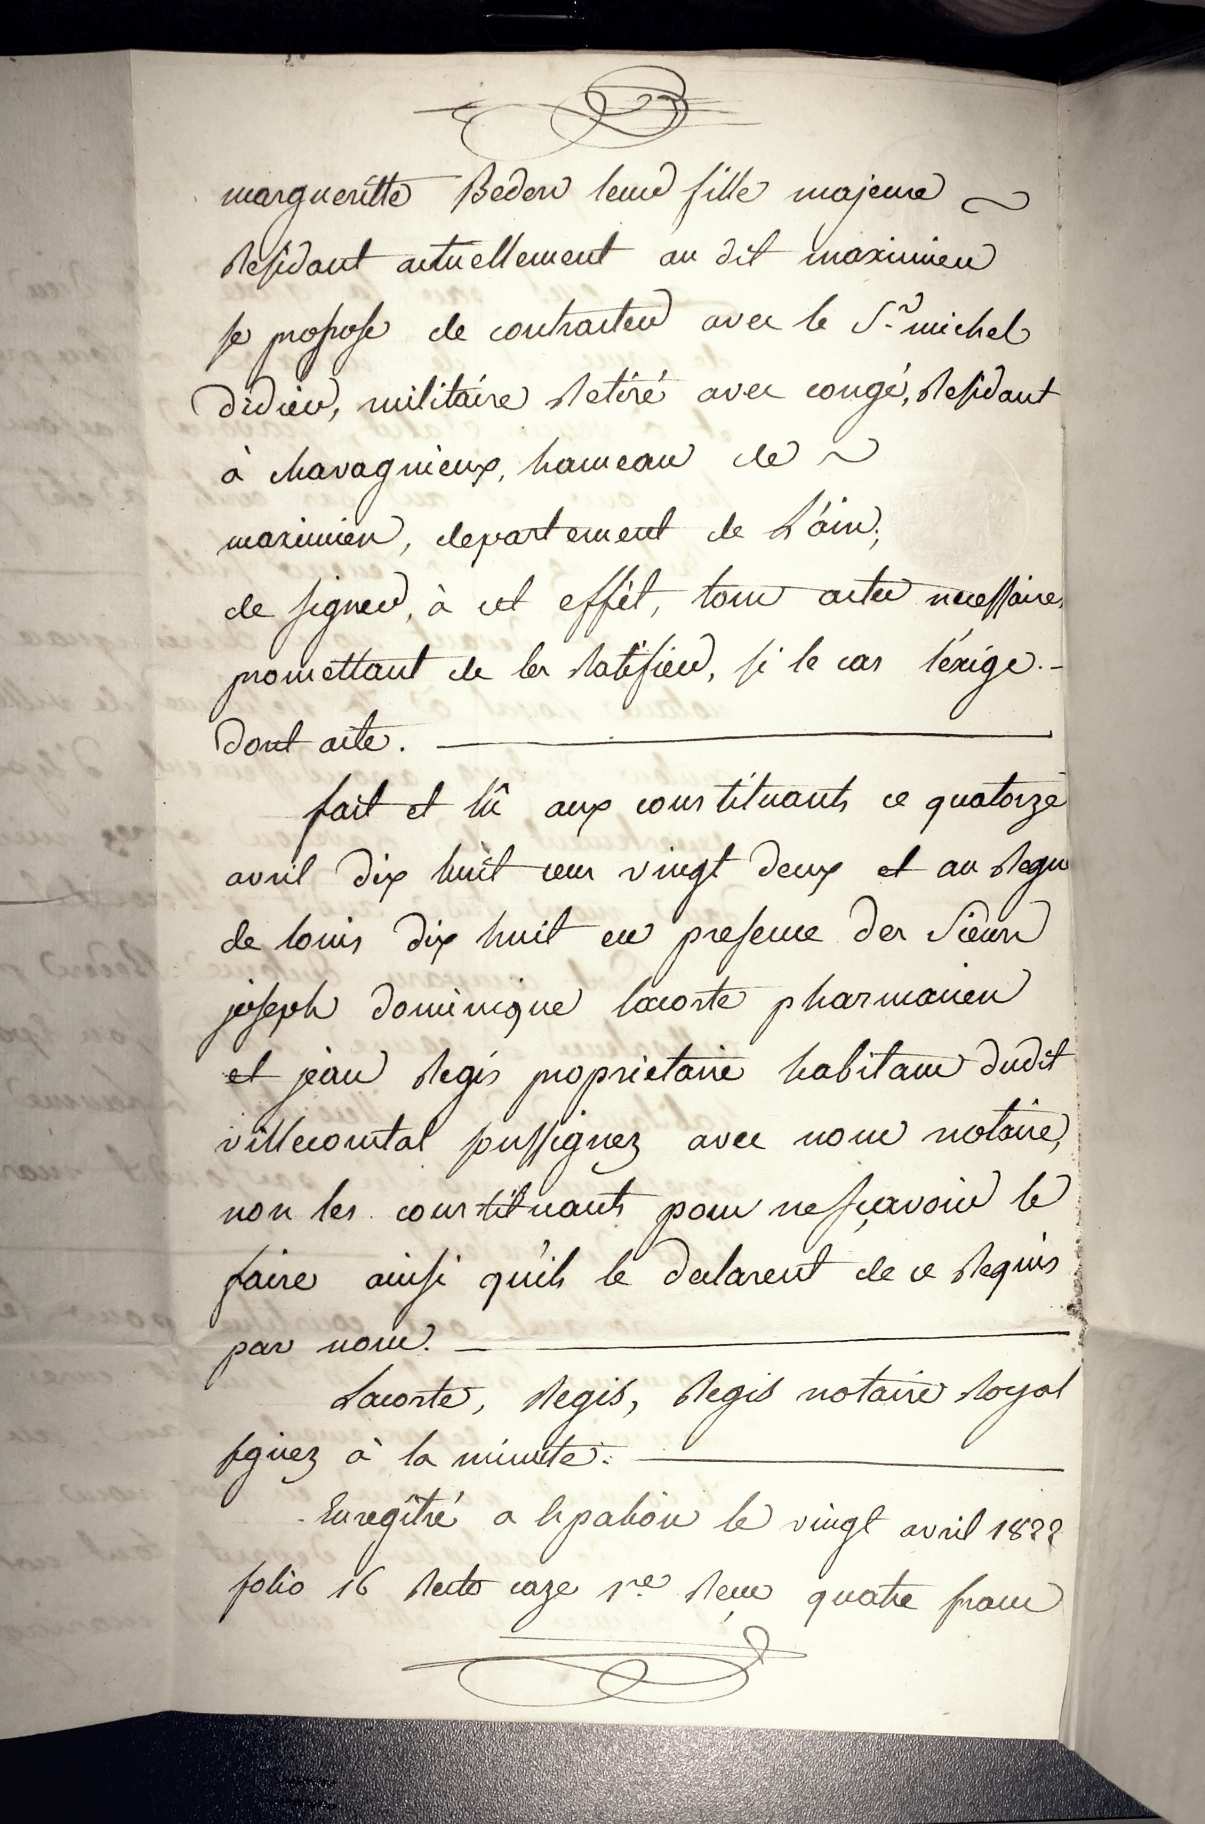 margueritte Bedos leur fille majeure
Residant actuellement au dit maximieu
se propose de contracter avec le Sr. michel
didier, militaire Retiré avec congé, Residant
à chavagnieux, hameau de
maximieu, departement de L'ain;
de signer, à cet effèt, tous actes necessaires
promettant de les Ratifier, si le cas l'éxige.-
dont acte.
fait et lû aux constituants ce quatorze
avril dix huit cens vingt deux et au Regne
de louis dix huit en presence des Sieurs
joseph dominique lacoste pharmacien
et jean Regis proprietaire habitans dudit
villecomtal sussignez avec nous notaire,
non les constituants pour ne sçavoir le
faire ainsi qu'ils le declarent de ce Requis
par nous.
Lacoste, Regis, Regis notaire Royal
signez à la minute.
Enregîtré a Espalion le vingt avril 1822
folio 16 Recto caze 1re Reçu quatre francs